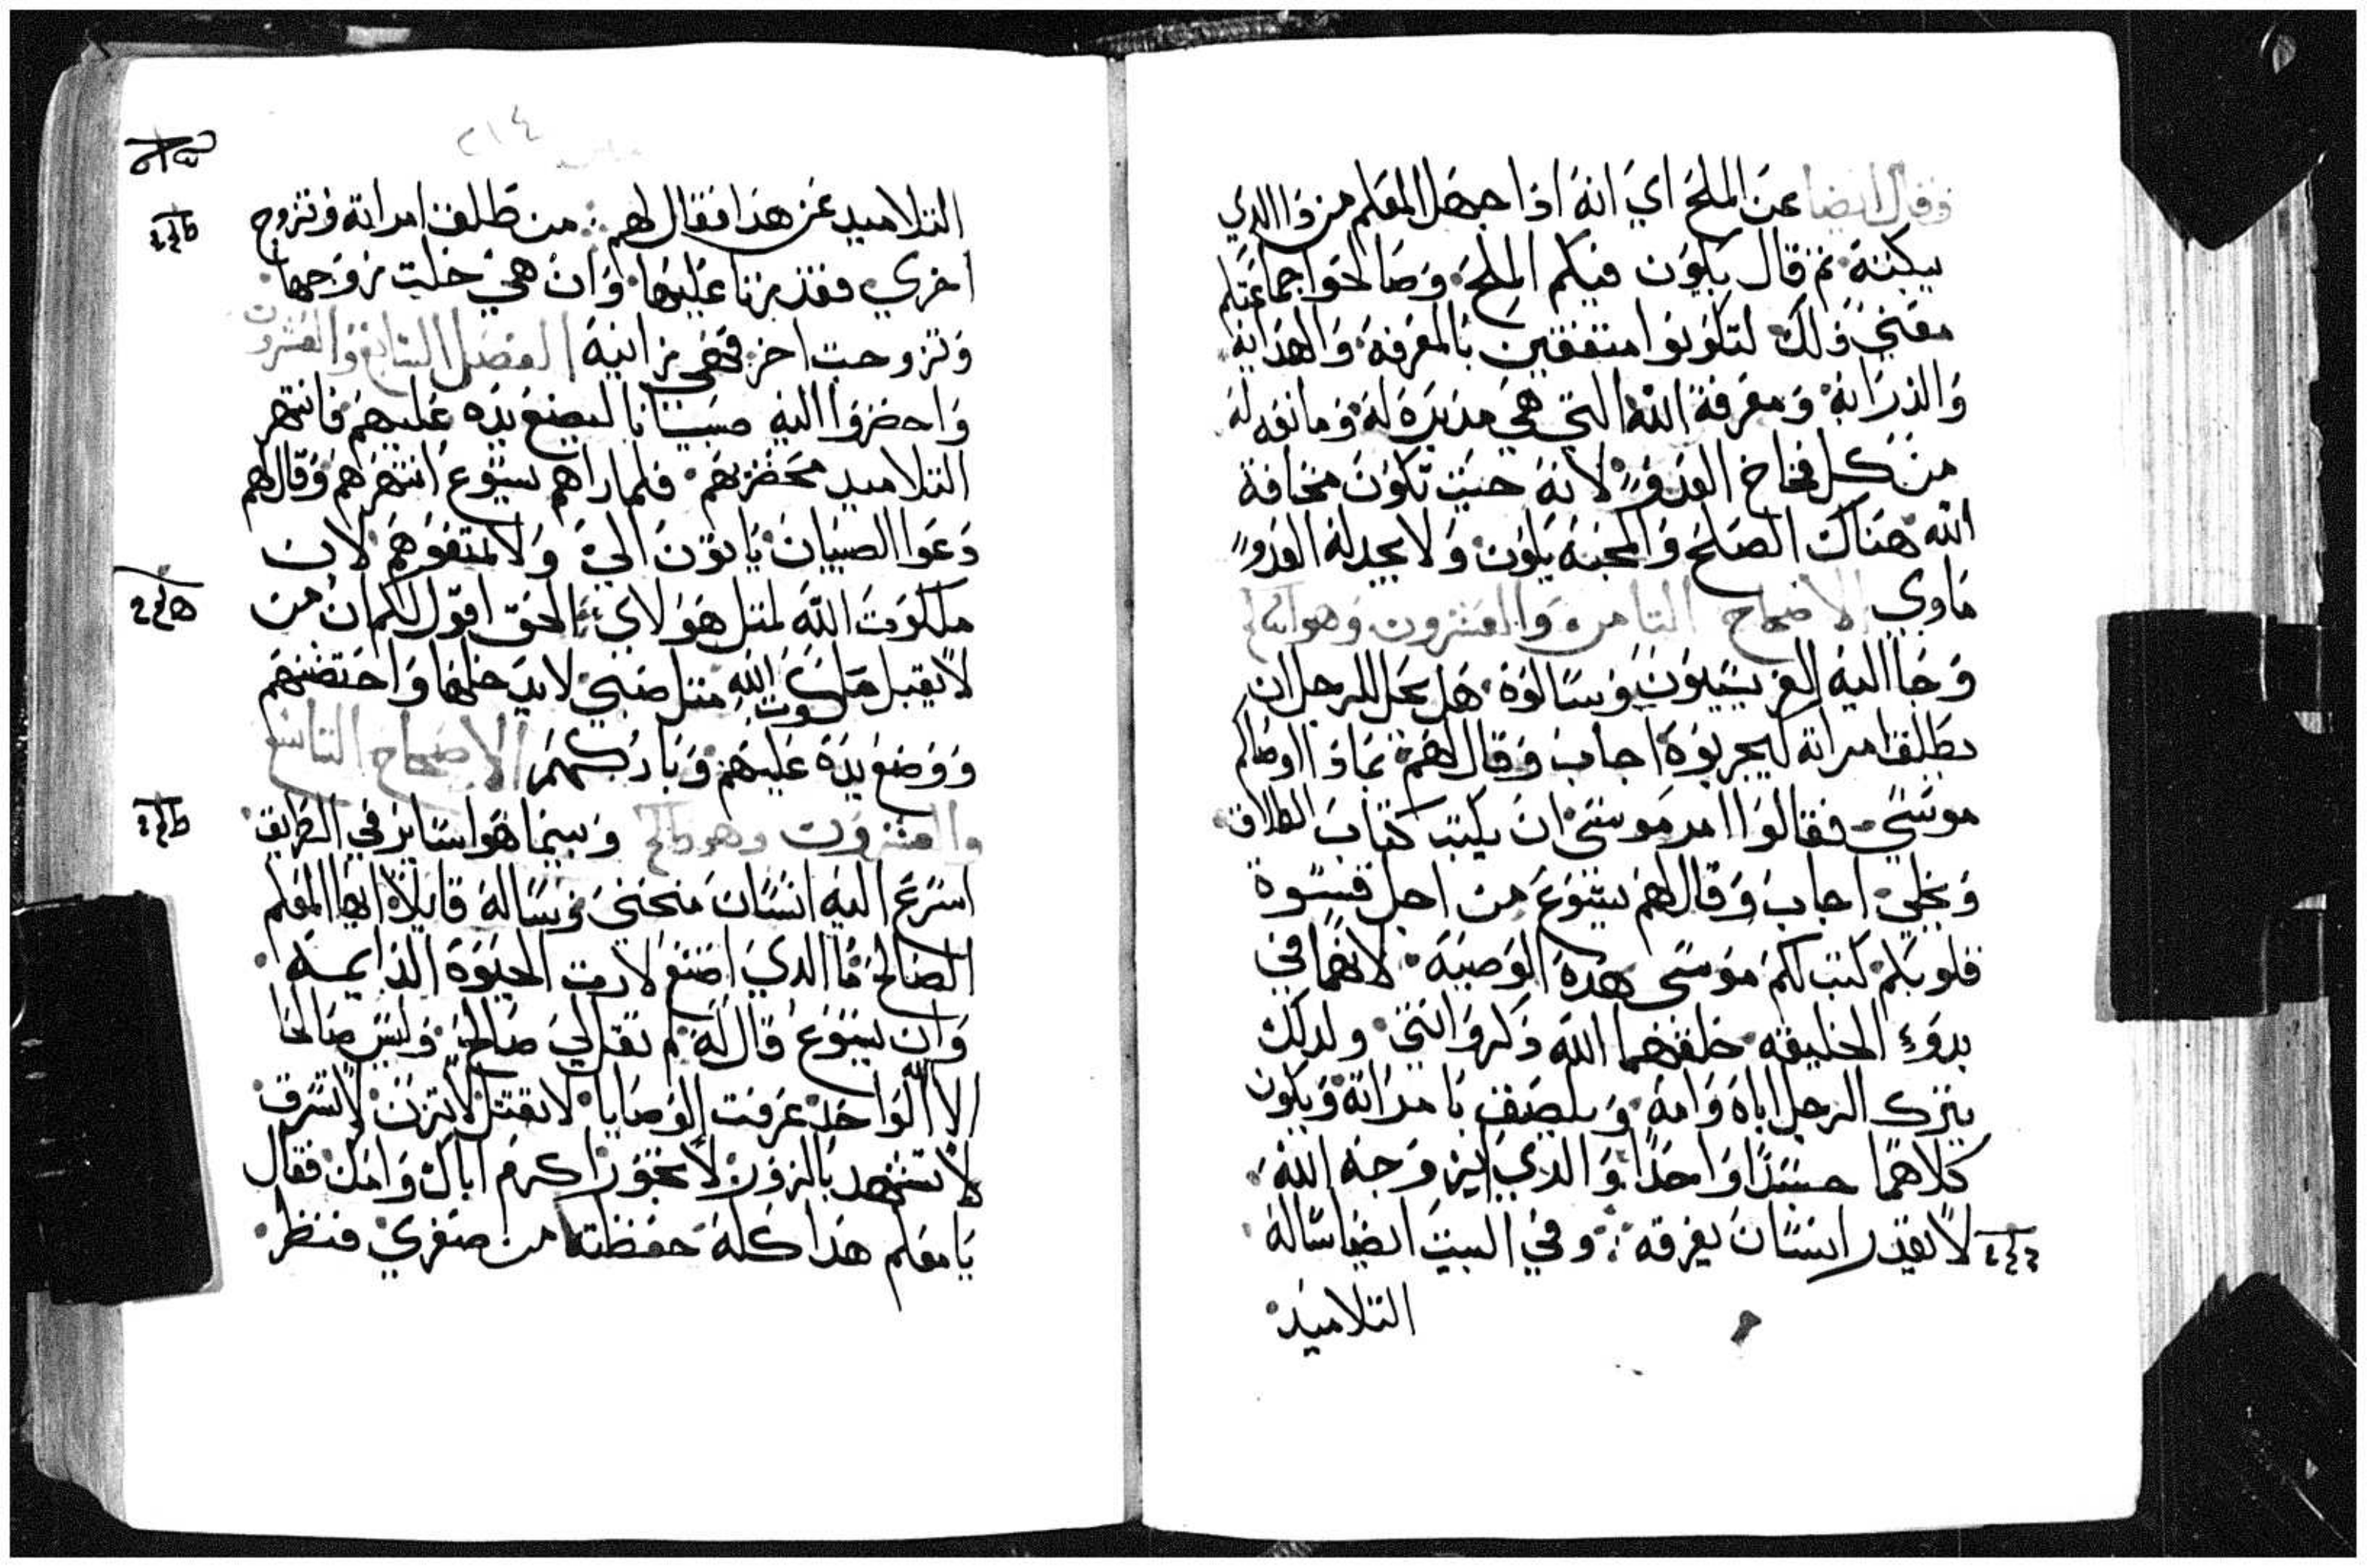 وقال ايضا عن الملح اي انه اذا جهل المعلم من ذا الدي
يبكته ثم قال يكون فيكم الملح وصالحوا جماعتكم
معني ذلك لتكونوا متفقين بالمعرفة والهداية
والدراية ومعرفة الله التي هي مدبرة له ومانعه له
من كل فخاخ العدو لانه حيث تكون مخافة
الله هناك الصلح والمحبة يكون ولا يجد له العدو
ماوي الاصحاح الثامن والعشرون وهو
وجا اليه الفريسيون وسالوه هل يحل للرجل ان
يطلق امراته ليجربوه اجاب وقال لهم بماذا اوصاكم
موسي فقالوا امر موسي ان يكتب كتاب الطلاق
وتخلي اجاب وقال لهم يسوع من اجل قسوة
قلوبكم كتب لكم موسي هذه الوصية لانهما في
بدوء الخليقه خلقهما الله ذكر وانتي ولدلك
يترك الرجل اباه وامه ويلصق بامراته ويكون
كلاهما جسدا واحدا والذي ازوجه الله
لا يقدر انسان يفرقه وفي البيت ايضا ساله
التلاميد
٢١٤
التلاميد عن هدا فقال لهم من طلق امراته وتزوج
اخري فقد زنا عليها وان هي خلت زوجها
وتزوجت اخر فهي زانية الفصل السابع والعشرون
واحضروا اليه صبيانا ليضع يده عليهم فانتهر
التلاميد محضريهم فلما راهم يسوع انتهرهم وقال لهم
دعوا الصبيان ياتون الي ولا تمنعوهم لان
ملكوت الله لمثل هولاي الحق اقول لكم ان من
لا يقبل ملكوت الله مثل صبي لا يدخلها واحتضنهم
ووضع يده عليهم وباركهم الاصحاح التاسع
والعشرون وهو وبينما هوا ساير في الطريق
اسرع اليه انسان منحني وساله قايلا ايها المعلم
الصالح ما الدي اصنع لارت الحيوة الدايمة
وان يسوع قال له لم تقل لي صالح وليس صالحا
الا الله الواحد عرفت الوصايا لا تقتل لا تزن لا تسرق
لا تشهد بالزور لا تجور اكرم اباك وامك فقال
يا معلم هدا كله حفظته من صغري فنظر